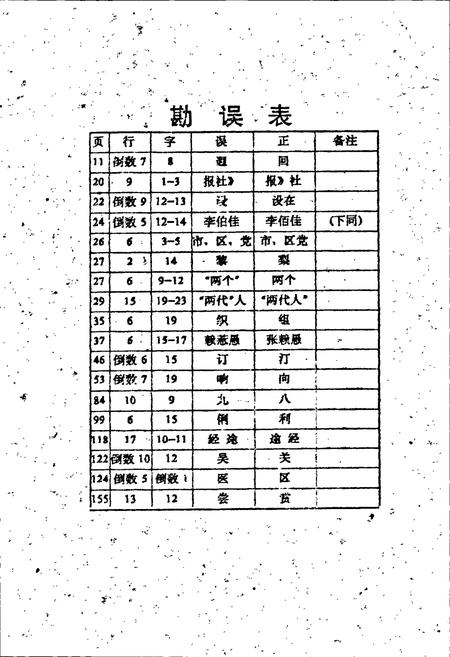 勘误表
页 行 字 误 正 备注
11 倒数7 8 迥 回
20 9 1-3 报社》 报》社
22 倒数9 12-13 设在
24 倒数5 12-14 李伯佳 李佰佳 (下同)
26 6 3-5 市、区、党 市、区党
27 2 14 黎 梨
27 6 9-12 “两个” 两个
29 15 19-23 “两代”人 “两代人”
35 6 19 织 组
37 6 15-17
46 倒数6 15 订 汀
53 倒数7 19 响 向
84 10 9 九 八
99 6 15 俐 利
118 17 10-11 经途 途经
122 倒数10 12 吴 关
124 倒数5 倒数1 医 区
155 13 12 尝 赏